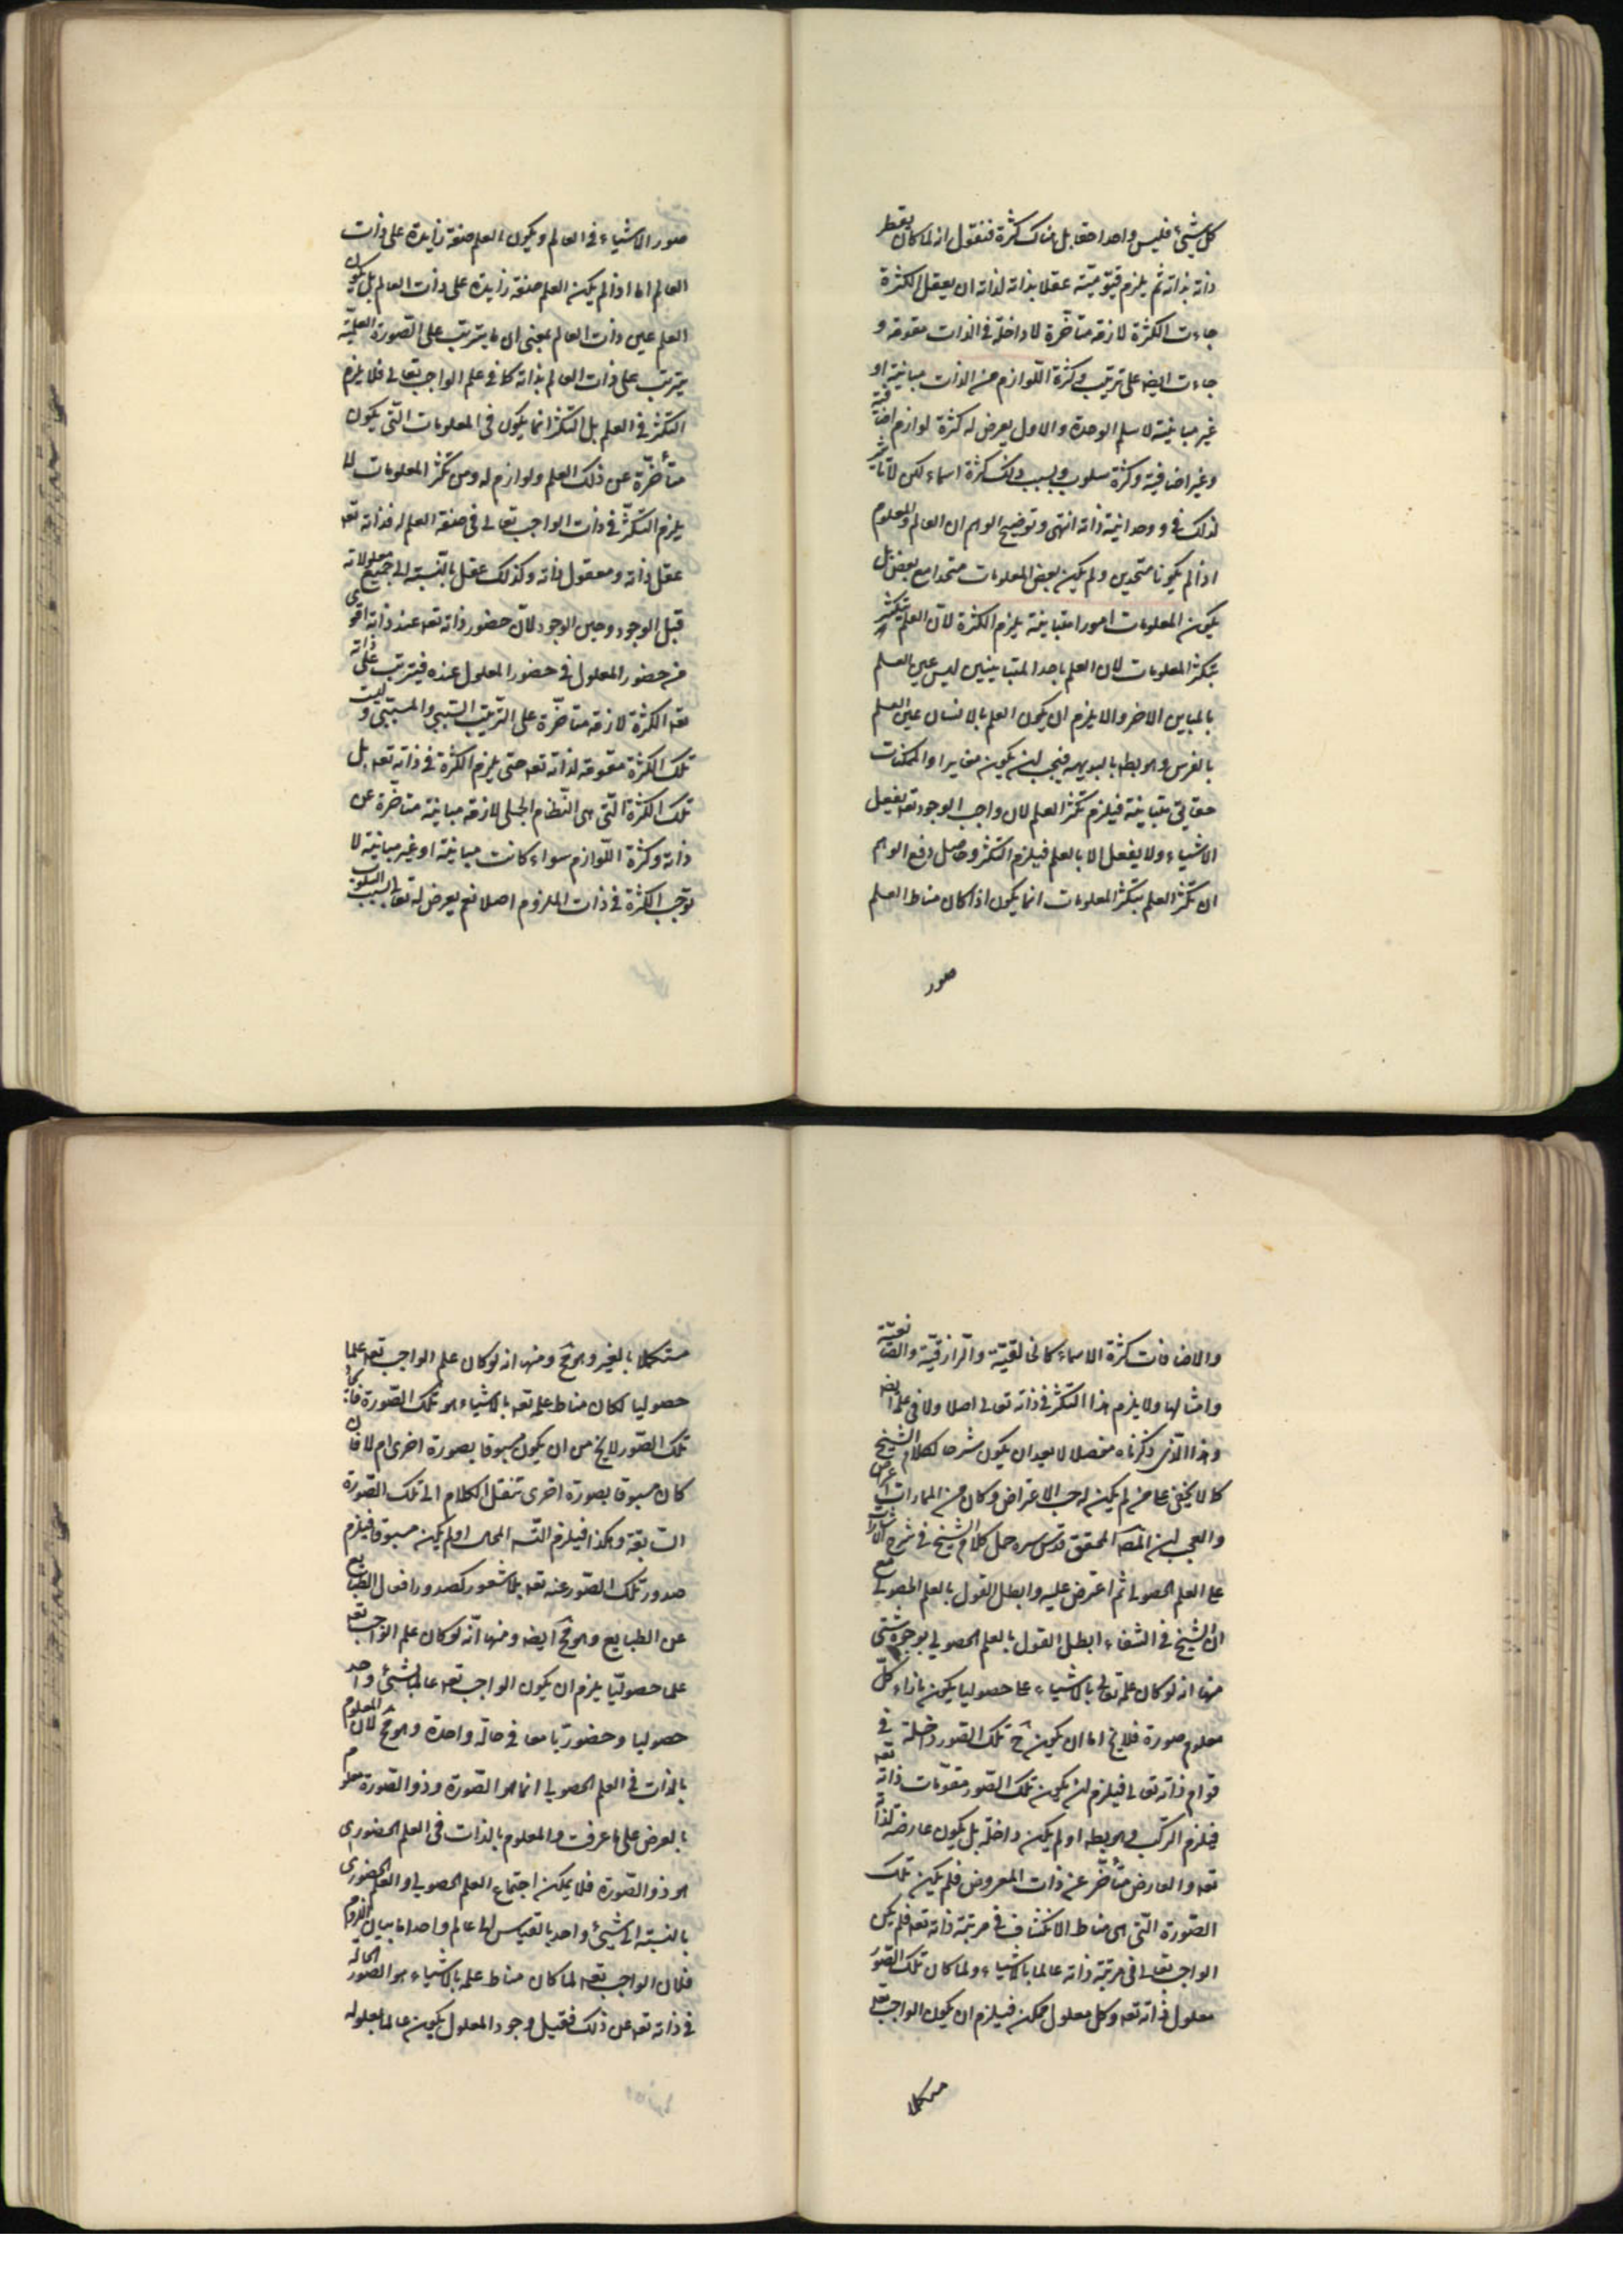 كل شيئ فليس واحدا حقا بل هناك كثرة فنقول انه لما كان يعقل
ذاته بذاته ثم يلزم قيوميته عقلا بذاته لذاته ان يعقل الكثرة
جاءت الكثرة لازمة متأخرة لا داخلة فى الذات مقومة و
جاءت ايضه على ترتيب وكثرة اللوازم من الذات مباينة او
غير مباينة لا سلم الوحدة والاول يعرض له كثرة لوازم اضافية
وغير اضافية وكثرة سلوب وبسبب ذلك كثرة اسماء لكن لا تأثير
لذلك فى وحدانية ذاته انتهى وتوضيح الوهم ان العالم والمعلوم
اذا لم يكونا متحدين ولم يكن بعض المعلومات متحدا مع بعض بل
يكون المعلومات امورا متباينة يلزم الكثرة لان العلم يتكثر
بتكثر المعلومات لان العلم باحد المتباينين ليس عين العلم
بالمباين الاخر والا يلزم ان يكون العلم بالانسان عين العلم
بالفرس وهو بط بالبديهه فيجب ان يكون مغايرا والممكنات
حقايق متباينة فيلزم تكثر العلم لان واجب الوجود تعه يفعل
الاشياء ولا يفعل الا بالعلم فيلزم التكثر وحاصل دفع الوهم
ان تكثر العلم بتكثر المعلومات انما يكون اذا كان مناط العلم
صور
صور الاشياء فى العالم ويكون العلم صفة زايدة على ذات
العالم اما اذا لم يكن العلم صفة زايدة على ذات العالم بل يكون
العلم عين ذات العالم بمعنى ان ما يترتب على الصورة العلمية
يترتب على ذات العالم بذاته كما فى علم الواجب تعالى فلا يلزم
التكثر فى العلم بل التكثر انما يكون فى المعلومات التى يكون
متأخرة عن ذلك العلم ولوازم له ومن تكثر المعلومات لا
يلزم التكثر فى ذات الواجب تعالى فى صفة العلم له فذاته تعه
عقل ذاته ومعقول ذاته وكذلك عقل بالنسبة الى جميع معلولاته
قبل الوجود وحين الوجود لان حضور ذاته تعه عند ذاته اقوى
من حضور المعلول فى حضور المعلول عنده فيترتب على ذاته
تعه الكثرة لازمة متأخرة على الترتيب السببى والمسببى وليست
تلك الكثرة مقومة لذاته تعه حتى يلزم الكثرة فى ذاته تعه بل
تلك الكثرة التى هى النظام الجملى لازمة مباينة متأخرة عن
ذاته وكثرة اللوازم سواء كانت مباينة او غير مباينة لا
توجب الكثرة فى ذات الملزوم اصلا نعم يعرض له تعالى بسبب السلوب
والاضافات كثرة الاسماء كالخالقية والرازقية والصانعية
وامثالها ولا يلزم هذا التكثر فى ذاته تعالى اصلا ولا فى علمه ايضه
وهذا الذى ذكرناه مفصلا لا يبعد ان يكون شرحا لكلام الشيخ
كما لا يخفى على من لم يكن له حب الاعتراض وكان من
والعجب ان المصه المحقق قدس سره حمل كلام الشيخ فى شرح الاشارات
على العلم الحصولى ثم اعترض عليه وابطل القول بالعلم الحصولى مع
ان الشيخ فى الشفاء ابطل القول بالعلم الحصولى بوجوه شتى
منها انه لو كان علمه تعالى بالاشياء علما حصوليا يكون بازاء كل
معلوم صورة فلا يخ اما ان يكون ح تلك الصور داخلة فى
قوام ذاته تعالى فيلزم ان يكون تلك الصور مقومات ذاته تعه
فيلزم التركب وهو بط او لم يكن داخلة بل يكون عارضة لذاته
تعه والعارض متأخر عن ذات المعروض فلم يكن تلك
الصورة التى هى مناط الانكشاف فى مرتبة ذاته تعه فلم يكن
الواجب تعالى فى مرتبة ذاته عالما بالاشياء ولما كان تلك الصور
معلول ذاته تعه وكل معلول ممكن فيلزم ان يكون الواجب تعه
مستكملا
مستكملا بالغير وهو مح ومنها انه لو كان علم الواجب تعه علما
حصوليا لكان مناط علمه تعه بالاشياء هو تلك الصورة
تلك الصور لا يخ من ان يكون مسبوقا بصورة اخرى ام لا فان
كان مسبوقا بصورة اخرى ننقل الكلام الى تلك الصورة
السابقة وهكذا فيلزم التسه المحال او لم يكن مسبوقا فيلزم
صدور تلك الصور عنه تعه بلا شعور كصدور افعال الطبايع
عن الطبايع وهو مح ايضه ومنها انه لو كان علم الواجب تعه
علما حصوليا يلزم ان يكون الواجب تعه عالما بشيئ واحد
حصوليا وحضوريا معا فى حالة واحدة وهو مح لان المعلوم
بالذات فى العلم الحصولى انما هو الصورة وذو الصورة معلوم
بالعرض على ما عرفت والمعلوم بالذات فى العلم الحضورى
هو ذو الصورة فلا يمكن اجتماع العلم الحصولى والعلم الحضورى
بالنسبة الى شيئ واحد بالقياس الى عالم واحد اما بيان اللزوم
فلان الواجب تعه لما كان مناط علمه بالاشياء هو الصور الحالة
فى ذاته تعه عن ذلك فقبل وجود المعلول يكون عالما بمعلوله